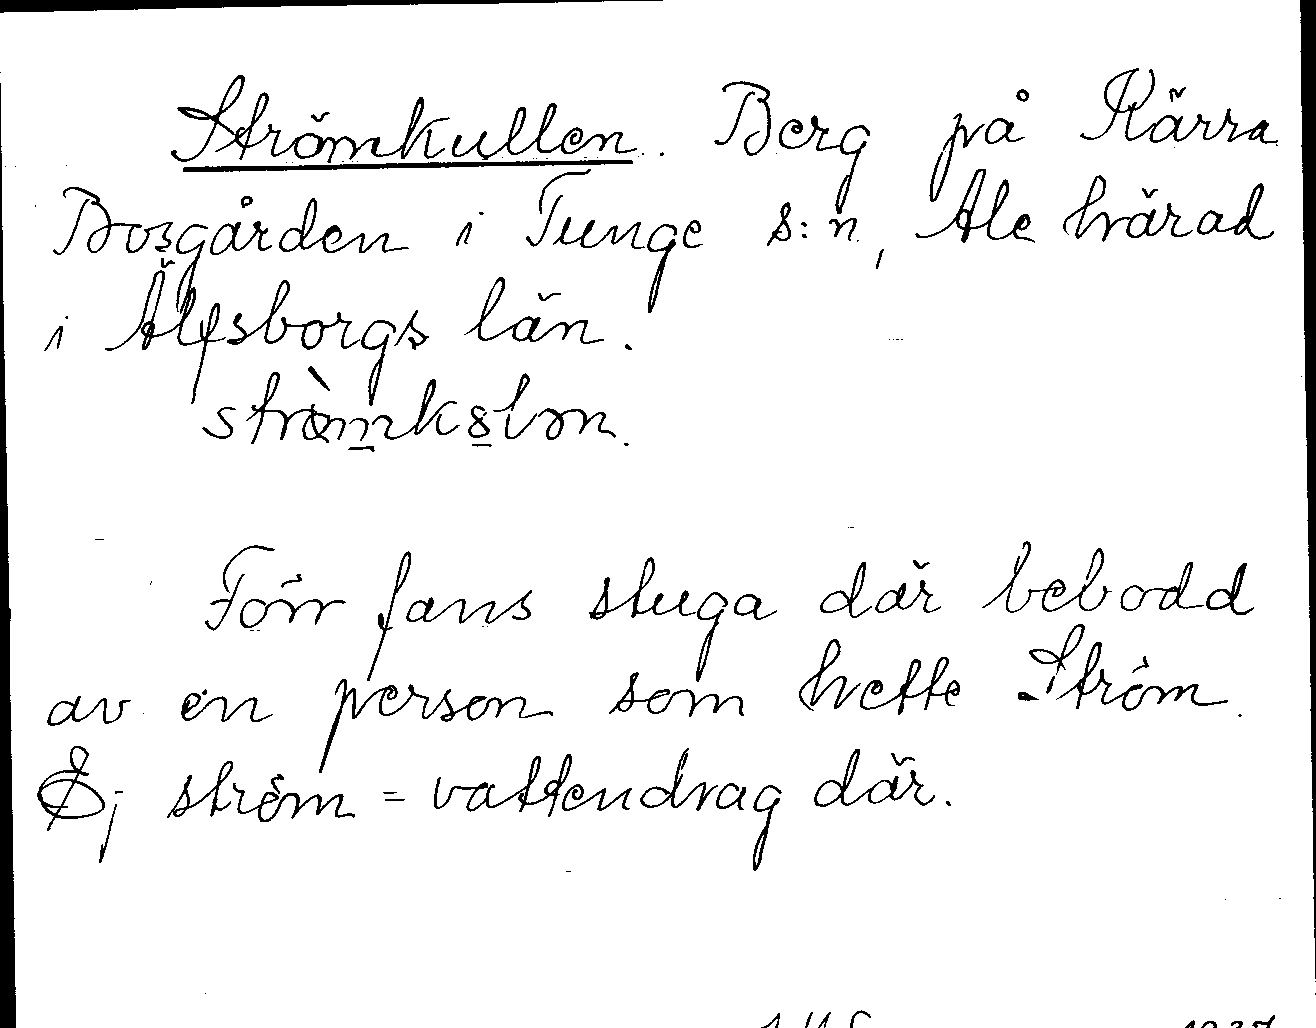 Strömkullen. Berg på Kärra
Bosgården i Tunge s:n, Ale härad
i Älfsborgs län.
strö̀mkȣlən.
Förr fans stuga där bebodd
av en person som hette Ström.
Ej ström = vattendrag där.